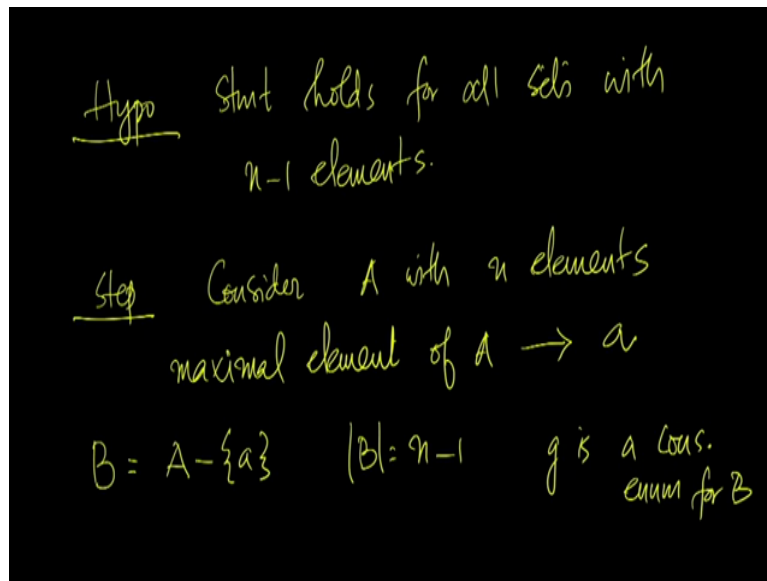 Hypo Stmt holds for all sets with
n-1 elements.
Step Consider A with n elements
maximal element of A → a
B = A-{a} |B|= n-1 g is a cons.
enum for B